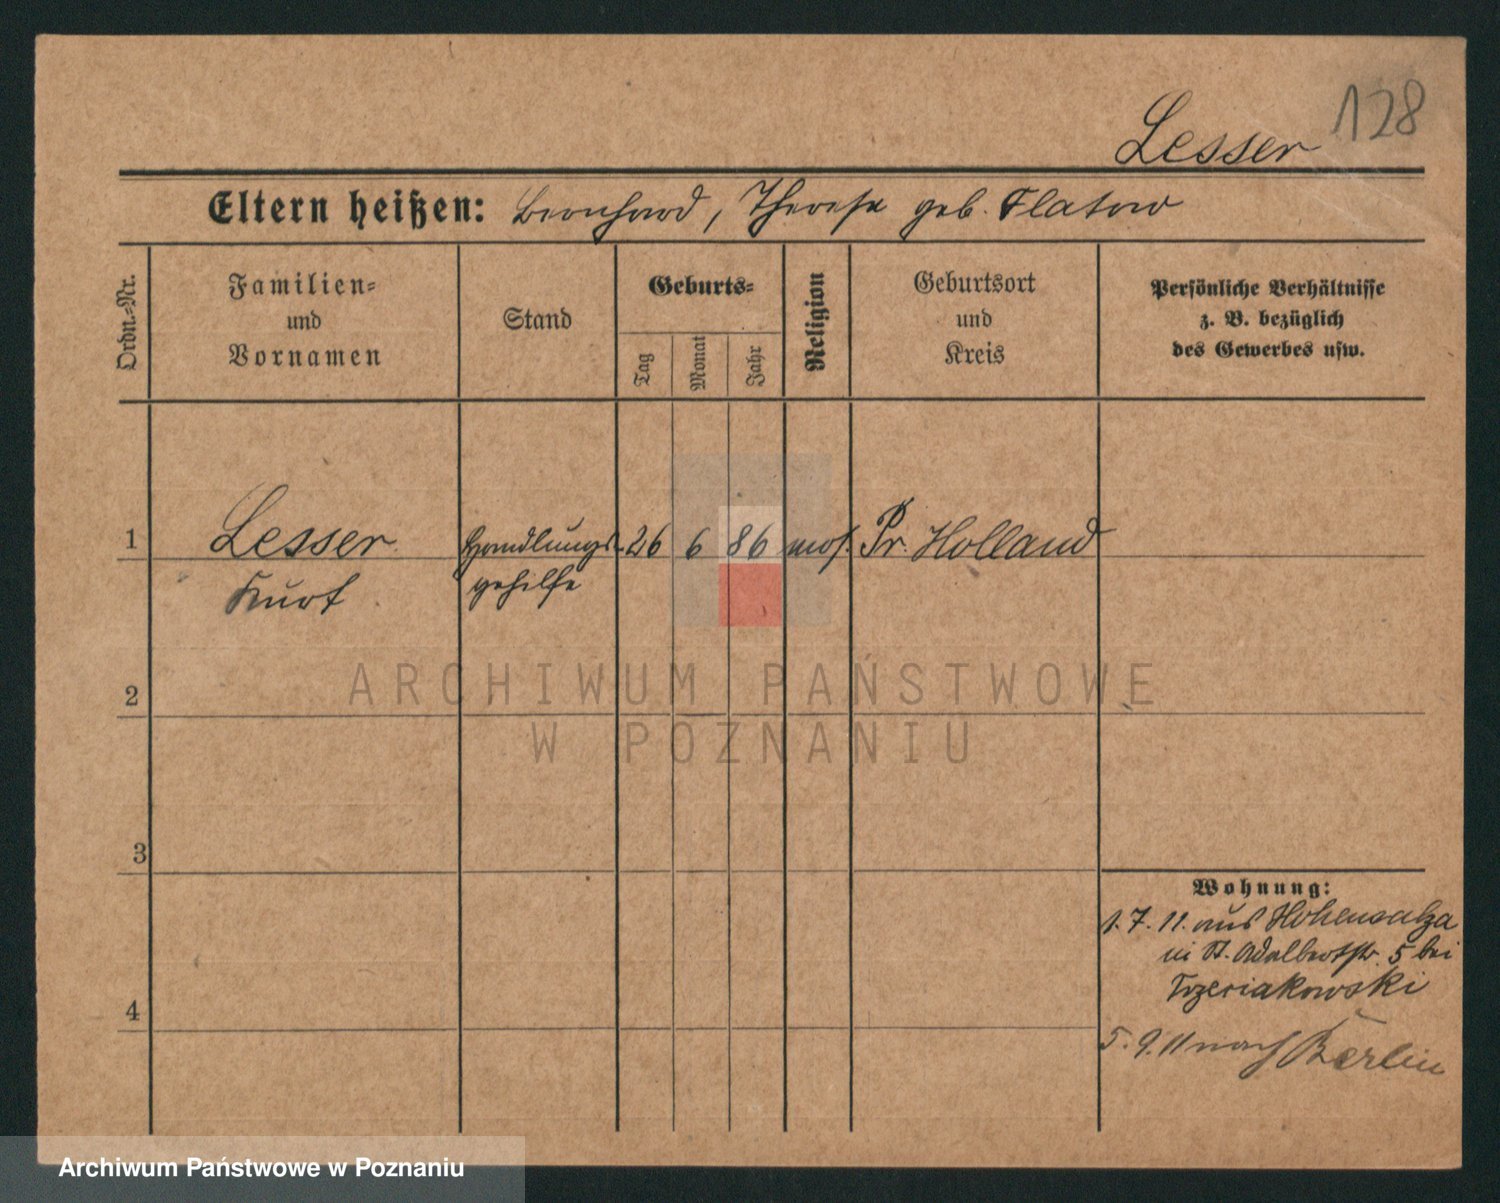 128
Lesser
Eltern heißen: Bernhard, Therese geb. Flatow
Ordn.-Nr.
Familien-
und
Vornamen
Stand
Geburts-
Tag
Monat
Jahr
Religion
Geburtsort
und
Kreis
Persönliche Verhältnisse
z. B. bezüglich
des Gewerbes usw.
1
Lesser
Kurt
Handlungs-
gehilfe
26 6 86 mos. Pr. Holland
2
3
4
Wohnung:
1.7.11. aus Hohensalza
in St. Adalbertstr. 5 bei
5.9.11 nach Berlin
ARCHIWUM PAŃSTWOWE
W POZNANIU
Archiwum Państwowe w Poznaniu